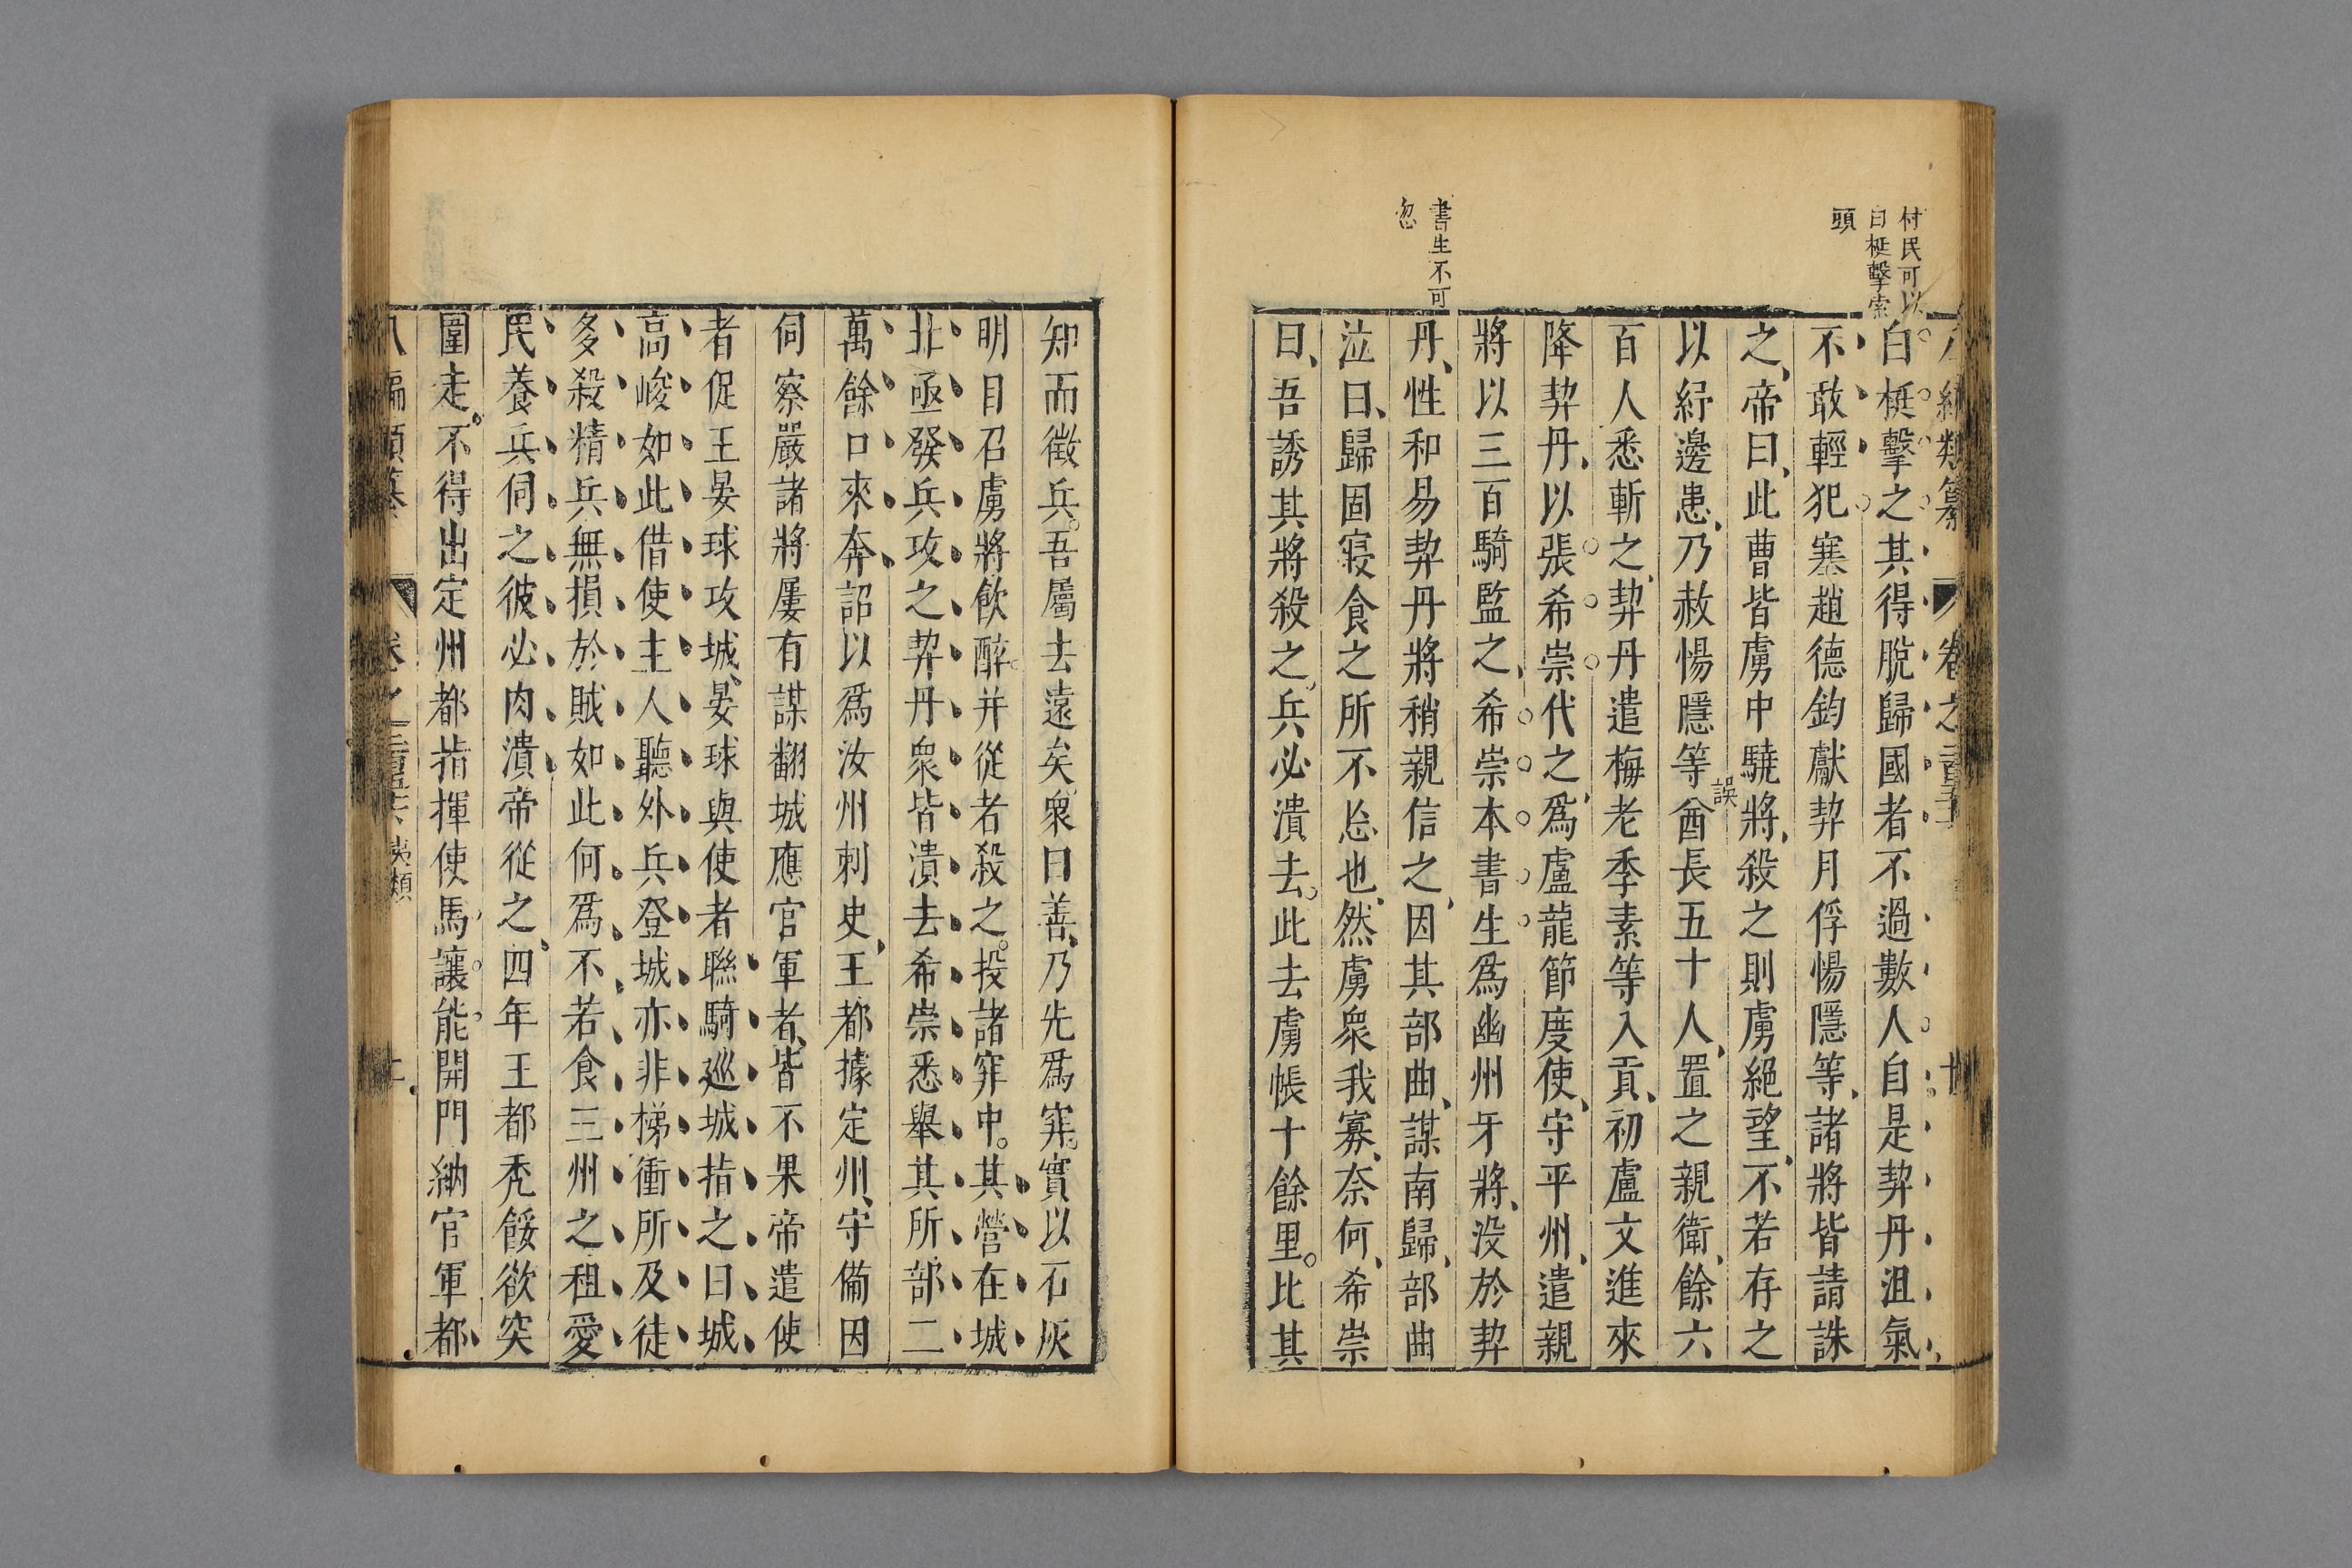 村民可以
白梃擊索
頭
書生不可
忽
白梃擊之其得脫歸國者不過數人自是契丹沮氣
不敢輕犯塞趙德鈞獻契丹俘惕隱等諸將皆請誅
之帝曰此曹皆虜中驍將殺之則虜絕望不若存之
以紓邊患乃赦惕隱等酋長五十人置之親衛餘六
誤
百人悉斬之契丹遣梅老季素等入貢初盧文進來
降契丹以張希崇代之爲盧龍節度使守平州遣親
將以三百騎監之希崇本書生爲幽州牙將没於契
丹性和易契丹將稍親信之因其部曲謀南歸部曲
泣曰歸固寢食之所不忘也然虜衆我寡奈何希崇
曰吾誘其將殺之兵必潰去此去虜帳十餘里比其
知而徵兵吾屬去遠矣衆曰善乃先爲穽實以石灰
明日召虜將飲醉并從者殺之投諸穽中其營在城
北亟發兵攻之契丹衆皆潰去希崇悉舉其所部二
萬餘口來奔詔以爲汝州刺史王都據定州守備因
伺察嚴諸將屢有謀翻城應官軍者皆不果帝遣使
者促王晏球攻城晏球與使者聯騎巡城指之曰城
高峻如此借使主人聽外兵登城亦非梯衝所及徒
多殺精兵無損於賊如此何爲不若食三州之租愛
民養兵伺之彼必肉潰帝從之四年王都禿餒欲突
圍走不得出定州都指揮使馬讓能開門納官軍都